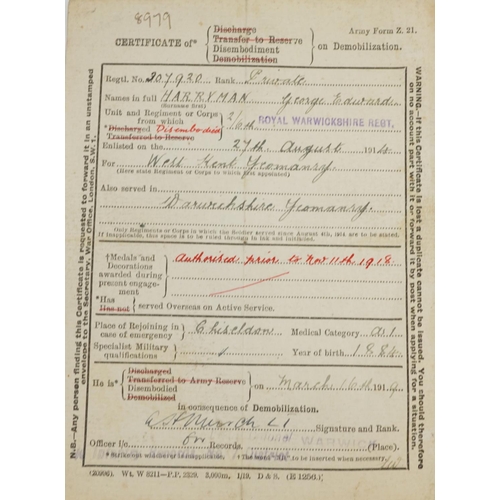 8979
Army Form Z. 21.
Discharge
Transfer to Reserve
CERTIFICATE of* Disembodiment on Demobilization.
Demobilization
Regtl. No. 307920 Rank Private
Names in full HARRYMAN George Edward
(Surname first)
Unit and Regiment or Corps
from which 2/10th ROYAL WARWICKSHIRE REGT.
*Discharged Disembodied
Transferred to Reserve
Enlisted on the 27th August 1914
For West Kent Yeomanry
(Here state Regiment or Corps to which first appointed)
Also served in
Warwickshire Yeomanry
Only Regiments or Corps in which the Soldier served since August 4th, 1914 are to be stated.
If inapplicable, this space is to be ruled through in ink and initialled.
†Medals and Decorations awarded during present engagement
Authorised prior to Nov 11th 1918
*Has
Has not served Overseas on Active Service.
Place of Rejoining in case of emergency Chiseldon Medical Category A1
Specialist Military qualifications Year of birth 1884
Discharged
Transferred to Army Reserve
He is* Disembodied on March 16th 1919
Demobilized
in consequence of Demobilization.
Signature and Rank.
Officer i/c Records. WARWICK (Place).
*Strike out whichever is inapplicable. †The word "NIL" to be inserted when necessary.
(20996). Wt. W 6211—P.P. 2329. 3,000m. 1/19. D & S. (E 1256.)
N.B.—Any person finding this Certificate is requested to forward it in an unstamped envelope to the Secretary, War Office, London, S.W. 1.
WARNING.—If this Certificate is lost a duplicate cannot be issued. You should therefore on no account part with it or forward it by post when applying for a situation.